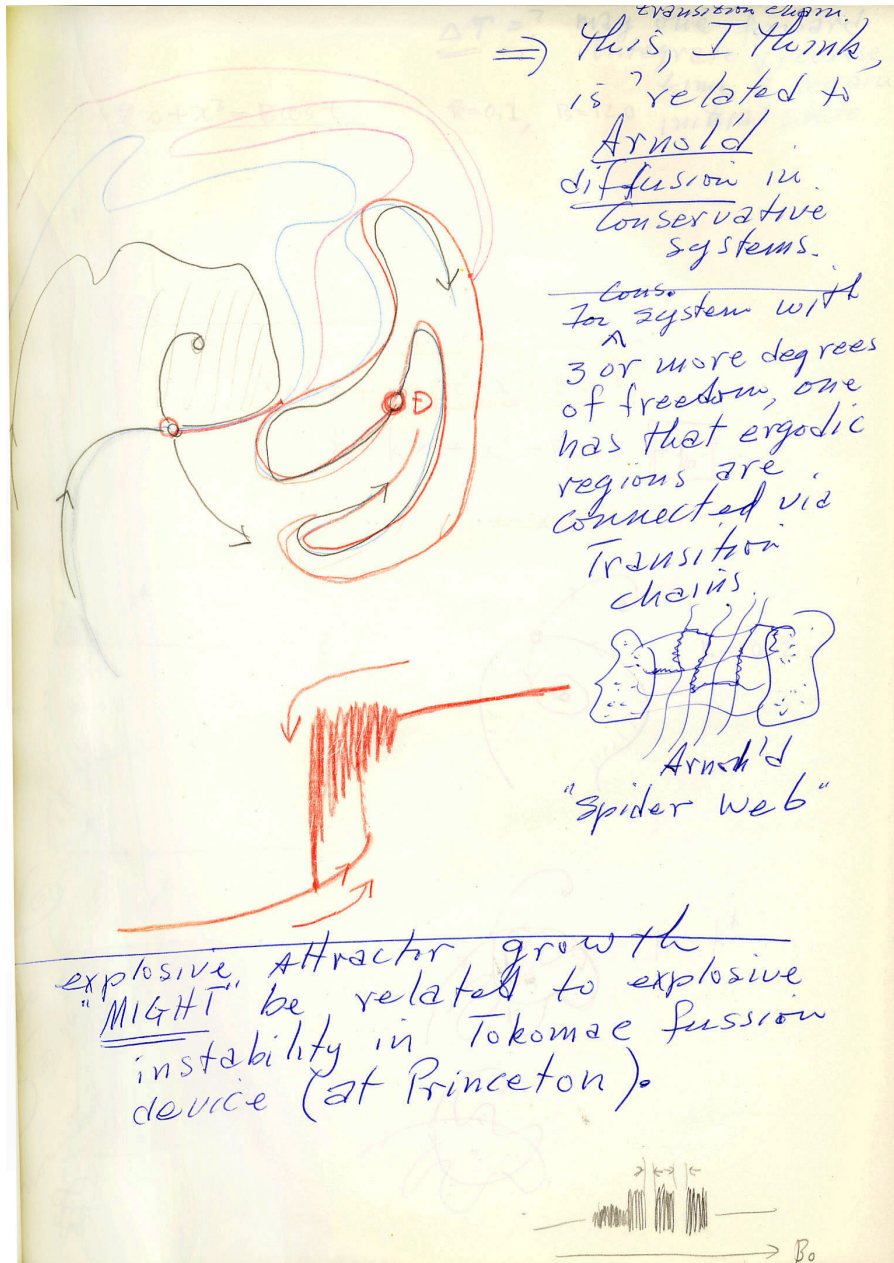 transition chain.
⇒ this, I think,
is related to
Arnold
diffusion in
Conservative
systems.
cons.
For system with
3 or more degrees
of freedom, one
has that ergodic
regions are
connected via
Transition
chains.
D
Arnol'd
"Spider Web"
explosive Attractor growth
"MIGHT" be related to explosive
instability in Tokomac fussion
device (at Princeton).
B₀